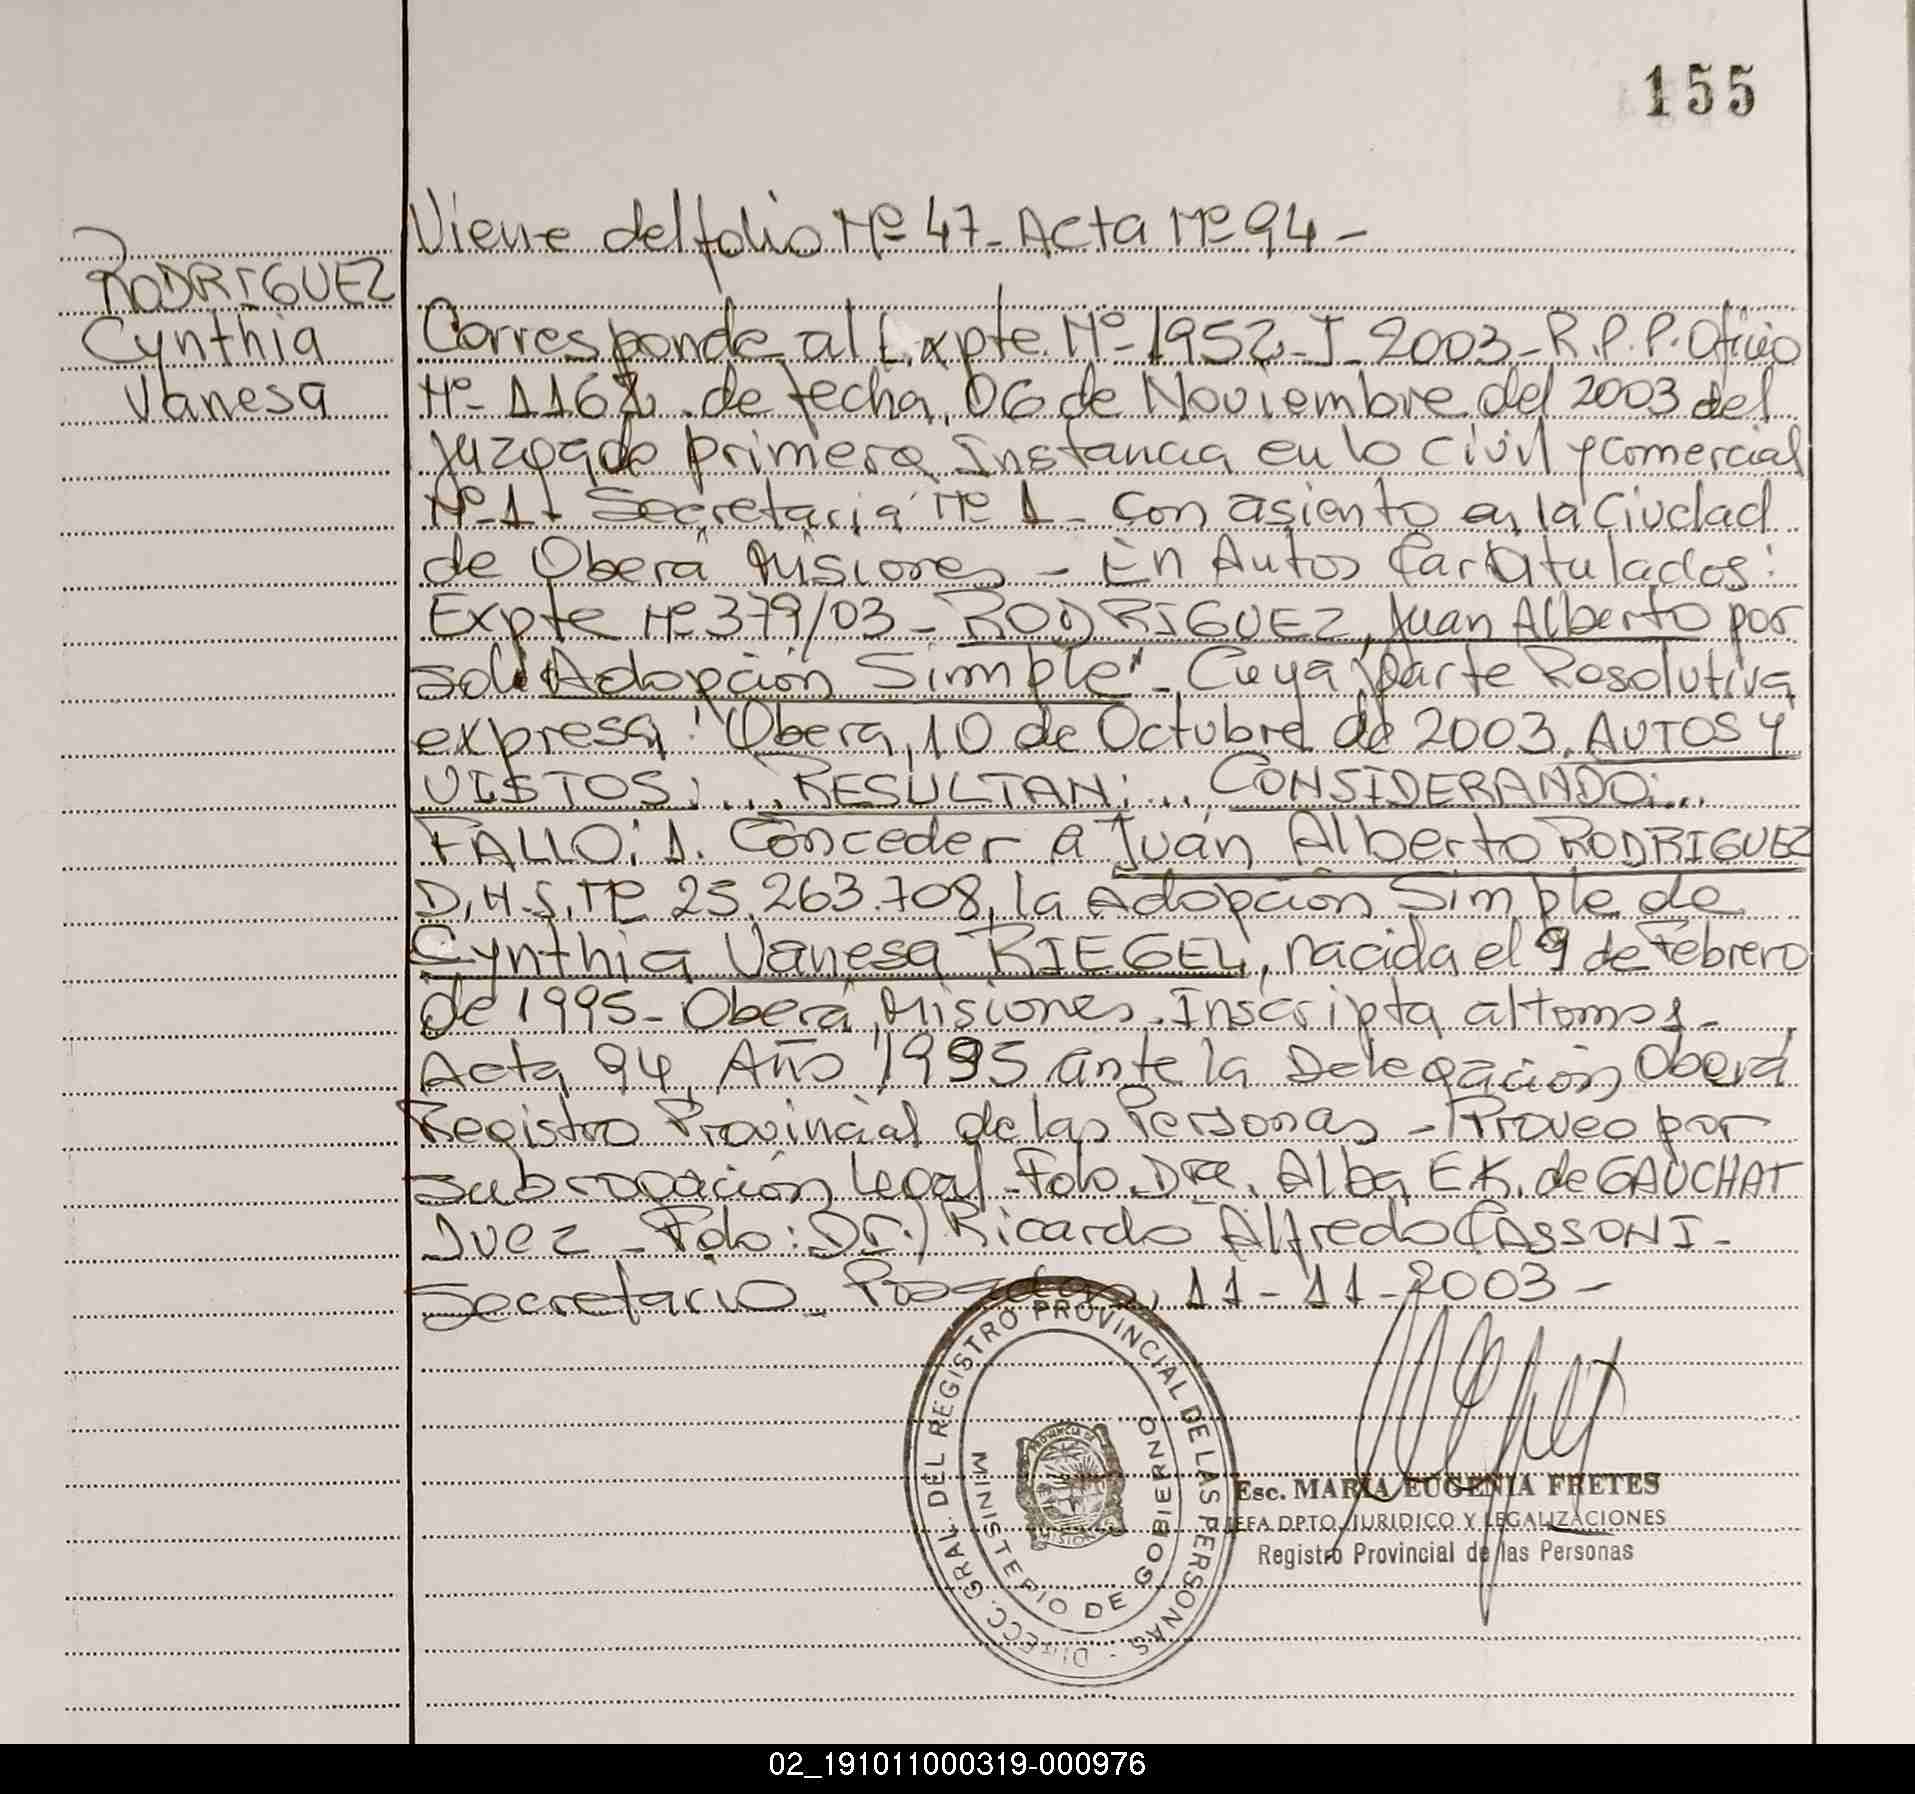 155
Viene del folio Nº 47 - Acta Nº 94 -
RODRIGUEZ
Cynthia
Vanesa
Corresponde al Expte. Nº 1952 - I - 2003 - R.P.P. Oficio
Nº 1162 de fecha, 06 de Noviembre del 2003 del
Juzgado primera Instancia en lo Civil y Comercial
Nº 1 - Secretaria Nº 1 - con asiento en la Ciudad
de Oberá Misiones - En Autos Caratulados:
Expte Nº 379/03 - RODRIGUEZ, Juan Alberto por
sol. Adopción Simple" - Cuya parte Resolutiva
expresa: "Oberá, 10 de Octubre de 2003. AUTOS Y
VISTOS: ... RESULTAN: ... CONSIDERANDO: ...
FALLO: 1. Conceder a Juan Alberto RODRIGUEZ
D.N.I. Nº 25.263.708, la Adopción Simple de
Cynthia Vanesa RIEGEL, nacida el 9 de Febrero
de 1995 - Oberá, Misiones. Inscripta al tomo 1 -
Acta 94, Año 1995 ante la Delegación Oberá
Registro Provincial de las Personas - Proveo por
subrogación legal. Fdo. Dra. Alba E.K. de GAUCHAT
Juez - Fdo: Dr.) Ricardo Alfredo CASSONI -
Secretario - Posadas, 11 - 11 - 2003 -
DIRECC. GRAL. DEL REGISTRO PROVINCIAL DE LAS PERSONAS
MINISTERIO DE GOBIERNO
PROVINCIA DE
MISIONES
Esc. MARIA EUGENIA FRETES
JEFA DPTO. JURIDICO Y LEGALIZACIONES
Registro Provincial de las Personas
02_191011000319-000976